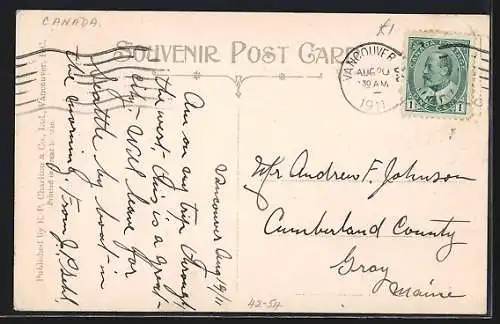 CANADA.
£1
SOUVENIR POST CARD
VANCOUVER
AUG 20
30 AM
1911
1 1
Vancouver Aug 19/11
Am on my trip through
the west - this is a great
city - will leave for
Seattle by boat - in
the morning. From J.
Mr Andrew F. Johnson
Cumberland County
Gray
Maine
42-54
Published by E. P. Charlton & Co., Ltd., Vancouver, B.C.
Printed in Great Britain.